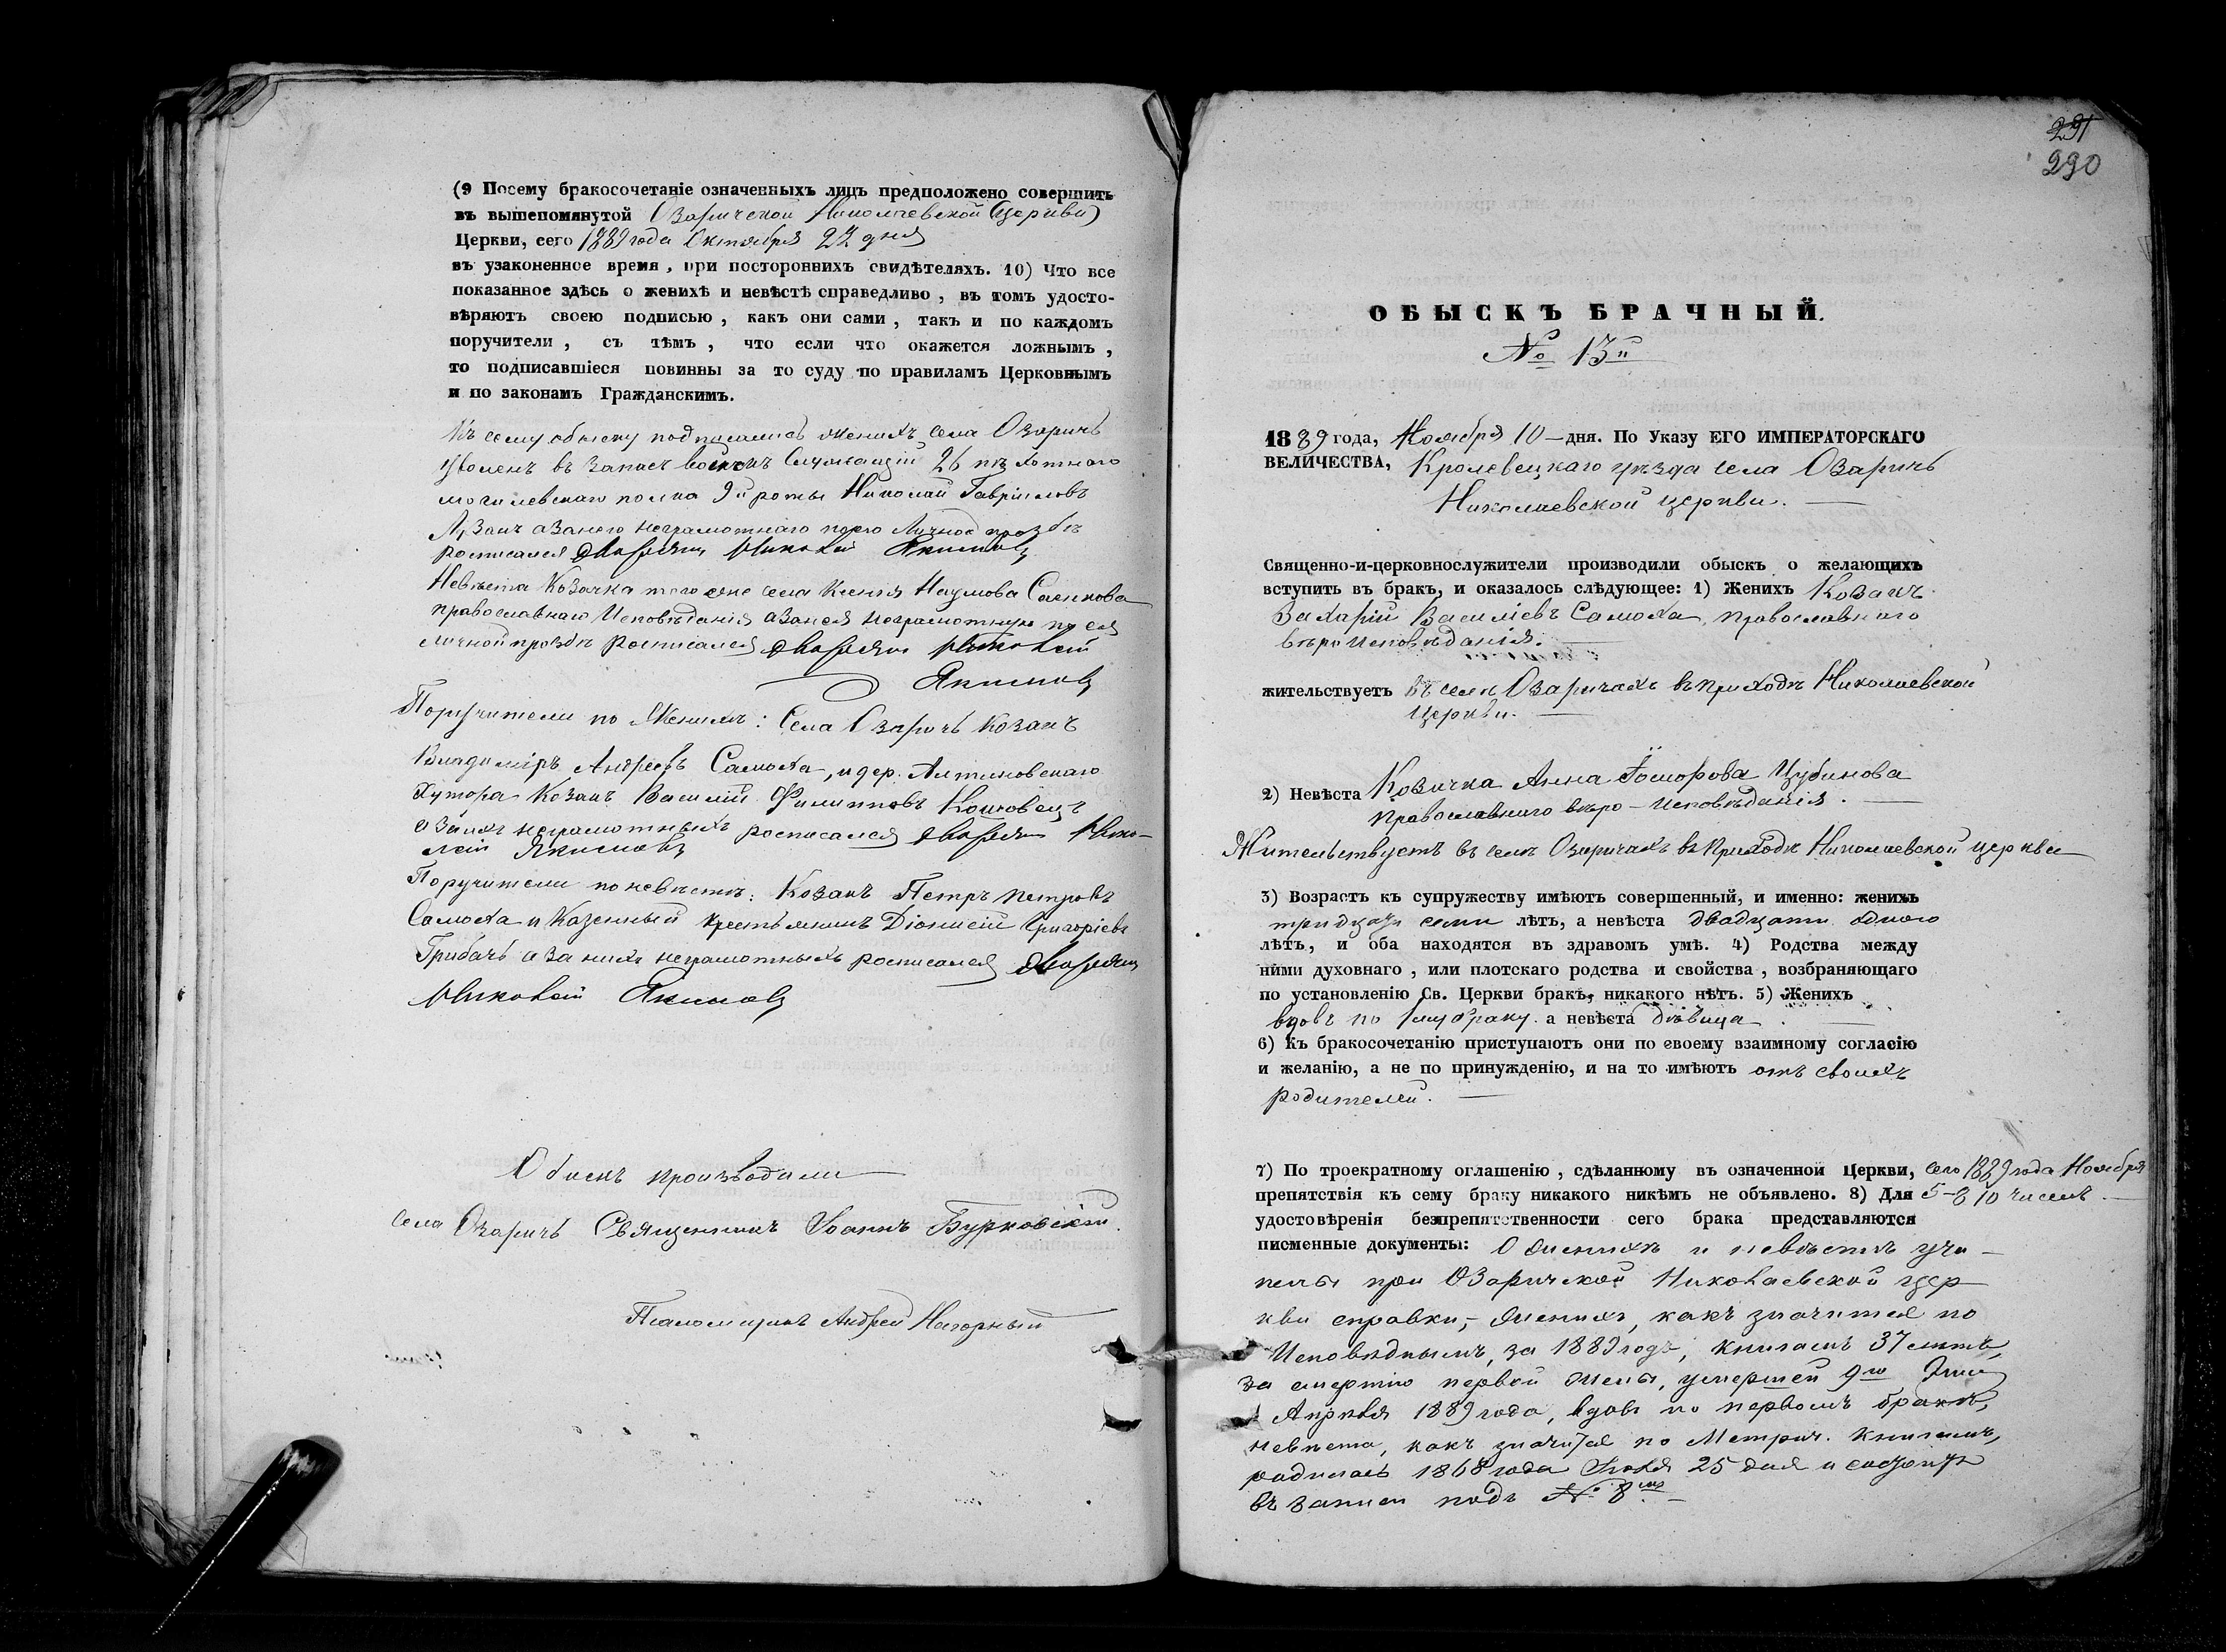 (9 Посему бракосочетаніе означенныхъ лицъ предположено совершить
въ вышепомянутой Озаричской Николаевской Церкви)
Церкви, сего 1889 года Октября 22 дня
въ узаконенное время, при постороннихъ свидѣтеляхъ. 10) Что все
показанное здѣсь о женихѣ и невѣстѣ справедливо, въ томъ удосто-
вѣряютъ своею подписью, какъ они сами, такъ и по каждомъ
поручители, съ тѣмъ, что если что окажется ложнымъ,
то подписавшіеся повинны за то суду по правиламъ Церковнымъ
и по законамъ Гражданскимъ.
Къ сему обыску подписались женихъ села Озаричъ
уволенъ въ запасъ войскъ Служащій 26 пѣхотнаго
могилевскаго полка 9й роты Николай Гавріиловъ
а за него неграмотнаго по его личной прозбѣ
росписался дворянин Николай Якимовъ
Невѣста Козачка того же села Ксенія Наумова Саенкова
православнаго Исповѣданія а за нея неграмотную по ея
личной прозбѣ росписался дворянин Николай
Якимовъ
Поручители по Женихѣ: Села Озаричъ козакъ
Владиміръ Андреевъ Самоха, и дер. Алтыновскаго
Хутора Козакъ Василій Филипповъ Коцовецъ
а за нихъ неграмотныхъ росписался дворянин Нико-
лай Якимовъ
Поручители по невѣстѣ: Козакъ Петръ Петровъ
Самоха и Казенный крестьянинъ Діонисій Григоріевъ
Грибачъ а за нихъ неграмотныхъ росписался дворянин
Николай Якимовъ
Обыскъ производили
Села Озаричъ Священникъ Іоаннъ Бурковскій.
Псаломщикъ Андрей Нагорный
291
290
ОБЫСКЪ БРАЧНЫЙ.
№ 13й
1889 года, Ноября 10 - дня. По Указу ЕГО ИМПЕРАТОРСКАГО
ВЕЛИЧЕСТВА, Кролевецкаго уѣзда села Озаричъ
Николаевской церкви.
Священно-и-церковнослужители производили обыскъ о желающихъ
вступить въ бракъ, и оказалось слѣдующее: 1) Женихъ Козакъ
Захарій Василіевъ Самоха, православнаго
вѣроисповѣданія.
жительствуетъ въ селѣ Озаричахъ въ приходѣ Николаевской
Церкви.
2) Невѣста Козачка Анна Цубинова
православнаго вѣро-исповѣданія.
Жительствуетъ въ селѣ Озаричахъ въ Приходѣ Николаевской церкви
3) Возрастъ къ супружеству имѣютъ совершенный, и именно: женихъ
тридцать семи лѣтъ, а невѣста двадцати одного
лѣтъ, и оба находятся въ здравомъ умѣ. 4) Родства между
ними духовнаго, или плотскаго родства и свойства, возбраняющаго
по установленію Св. Церкви бракъ, никакого нѣтъ. 5) Женихъ
вдовъ по 1му браку. а невѣста дѣвица
6) Къ бракосочетанію приступаютъ они по своему взаимному согласію
и желанію, а не по принужденію, и на то имѣютъ отъ своихъ
родителей.
7) По троекратному оглашенію, сдѣланному въ означенной Церкви, сего 1889 года Ноября
препятствія къ сему браку никакого никѣмъ не объявлено. 8) Для 5-8 10 чиселъ.
удостовѣренія безпрепятственности сего брака представляются
писменные документы: О женихѣ и невѣстѣ учи-
нены при Озаричской Николаевской цер
кви справки, женихъ, какъ значится по
Исповѣднымъ, за 1889 годъ, книгамъ 37 лѣтъ,
за смертію первой жены, умершей 9го дня
Апрѣля 1889 года, вдовъ по первомъ бракѣ,
невѣста, какъ значится по Метрич. книгамъ,
родилась 1868 года 25 дня и состоитъ
въ записи подъ № 8мъ